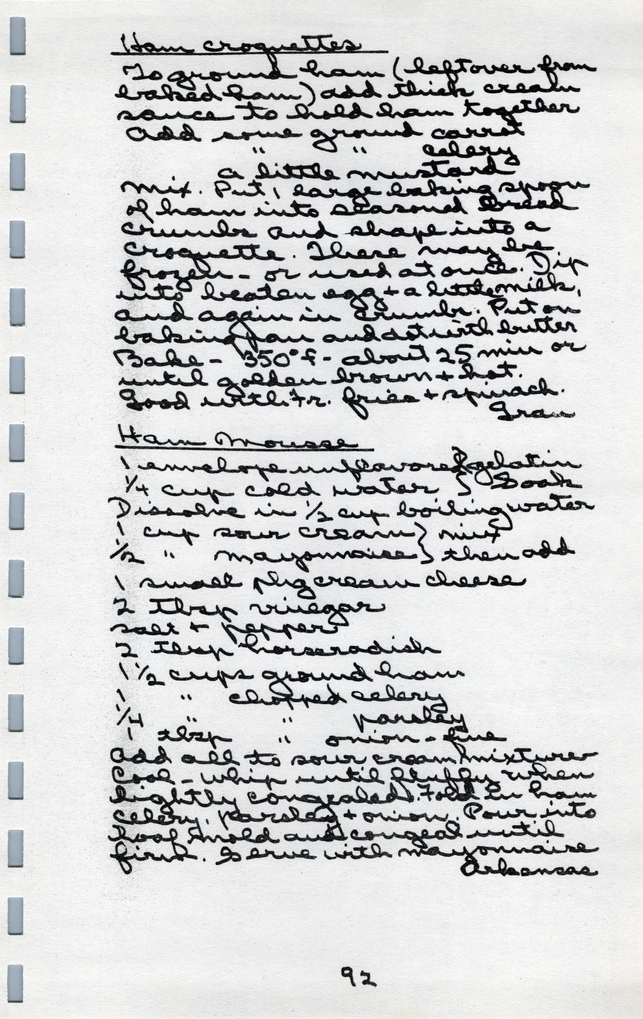 Ham croquettes
To ground ham (leftover from
baked ham) add thick cream
sauce to hold ham together
Add some ground carrot
" " celery
a little mustard
Mix. Put 1 large baking spoon
of ham into seasoned bread
crumbs and shape into a
croquette. These may be
frozen - or used at once. Dip
into beaten egg + a little milk,
and again in crumbs. Put on
baking pan and dot with butter
Bake - 350° f - about 25 min or
until golden brown + hot.
Good with fr. fries + spinach.
Gran
Ham Mousse
1 envelope unflavored } gelatin
1/4 cup cold water } Soak
Dissolve in 1/2 cup boiling water
1 cup sour cream } mix
1/2 " mayonnaise } then add
1 small pkg cream cheese
2 Tbsp vinegar
salt + pepper
2 tbsp horseradish
1 1/2 cups ground ham
1 " chopped celery
1/4 " " parsley
1 tbsp " onion - fine
Add all to sour cream mixture
Cool - whip until fluffy when
lightly congealed. Fold in ham
celery, parsley + onion. Pour into
loaf mold and congeal until
firm. Serve with mayonnaise
Arkansas
92